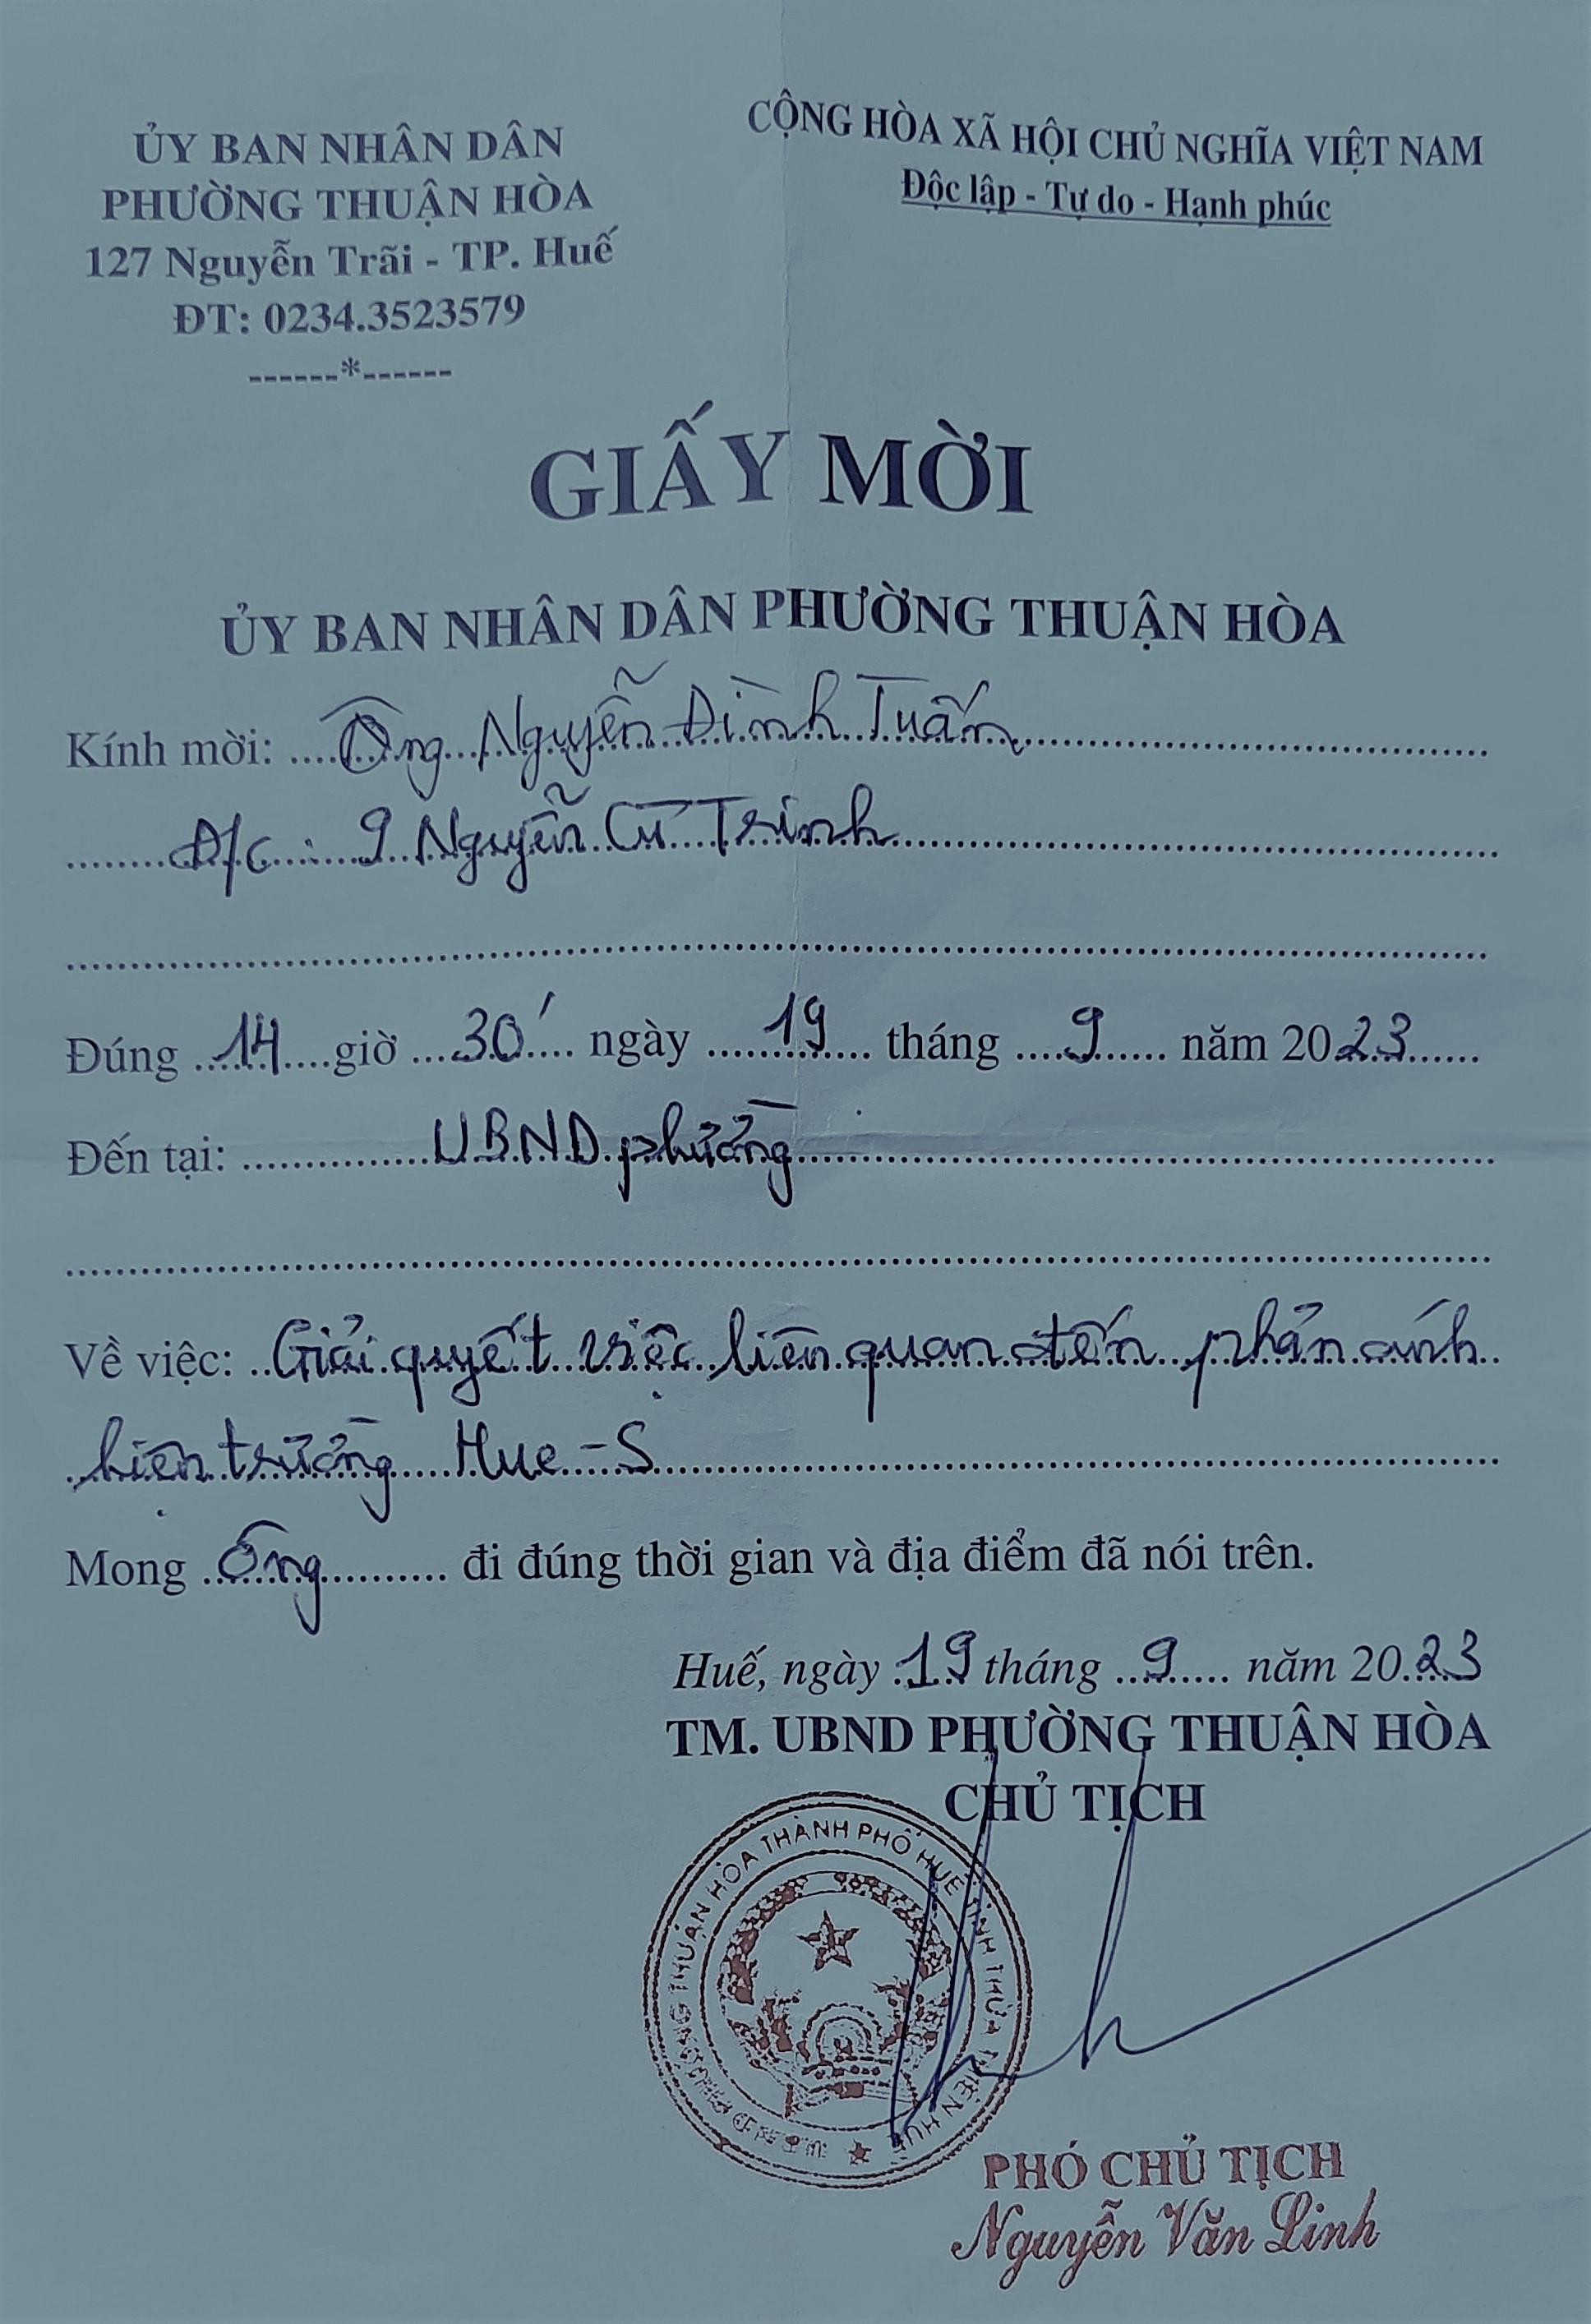 ỦY BAN NHÂN DÂN
PHƯỜNG THUẬN HÒA
127 Nguyễn Trãi - TP. Huế
ĐT: 0234.3523579
------*------
CỘNG HÒA XÃ HỘI CHỦ NGHĨA VIỆT NAM
Độc lập - Tự do - Hạnh phúc
GIẤY MỜI
ỦY BAN NHÂN DÂN PHƯỜNG THUẬN HÒA
Kính mời: Ông Nguyễn Đình Tuấn
Đ/c: 9 Nguyễn Cư Trinh
Đúng 14 giờ 30' ngày 19 tháng 9 năm 2023
Đến tại: UBND phường
Về việc: Giải quyết việc liên quan đến phản ánh
hiện trường Hue-S
Mong Ông đi đúng thời gian và địa điểm đã nói trên.
Huế, ngày 19 tháng 9 năm 2023
TM. UBND PHƯỜNG THUẬN HÒA
CHỦ TỊCH
U.B.N.D PHƯỜNG THUẬN HÒA THÀNH PHỐ HUẾ TỈNH THỪA THIÊN HUẾ
PHÓ CHỦ TỊCH
Nguyễn Văn Linh